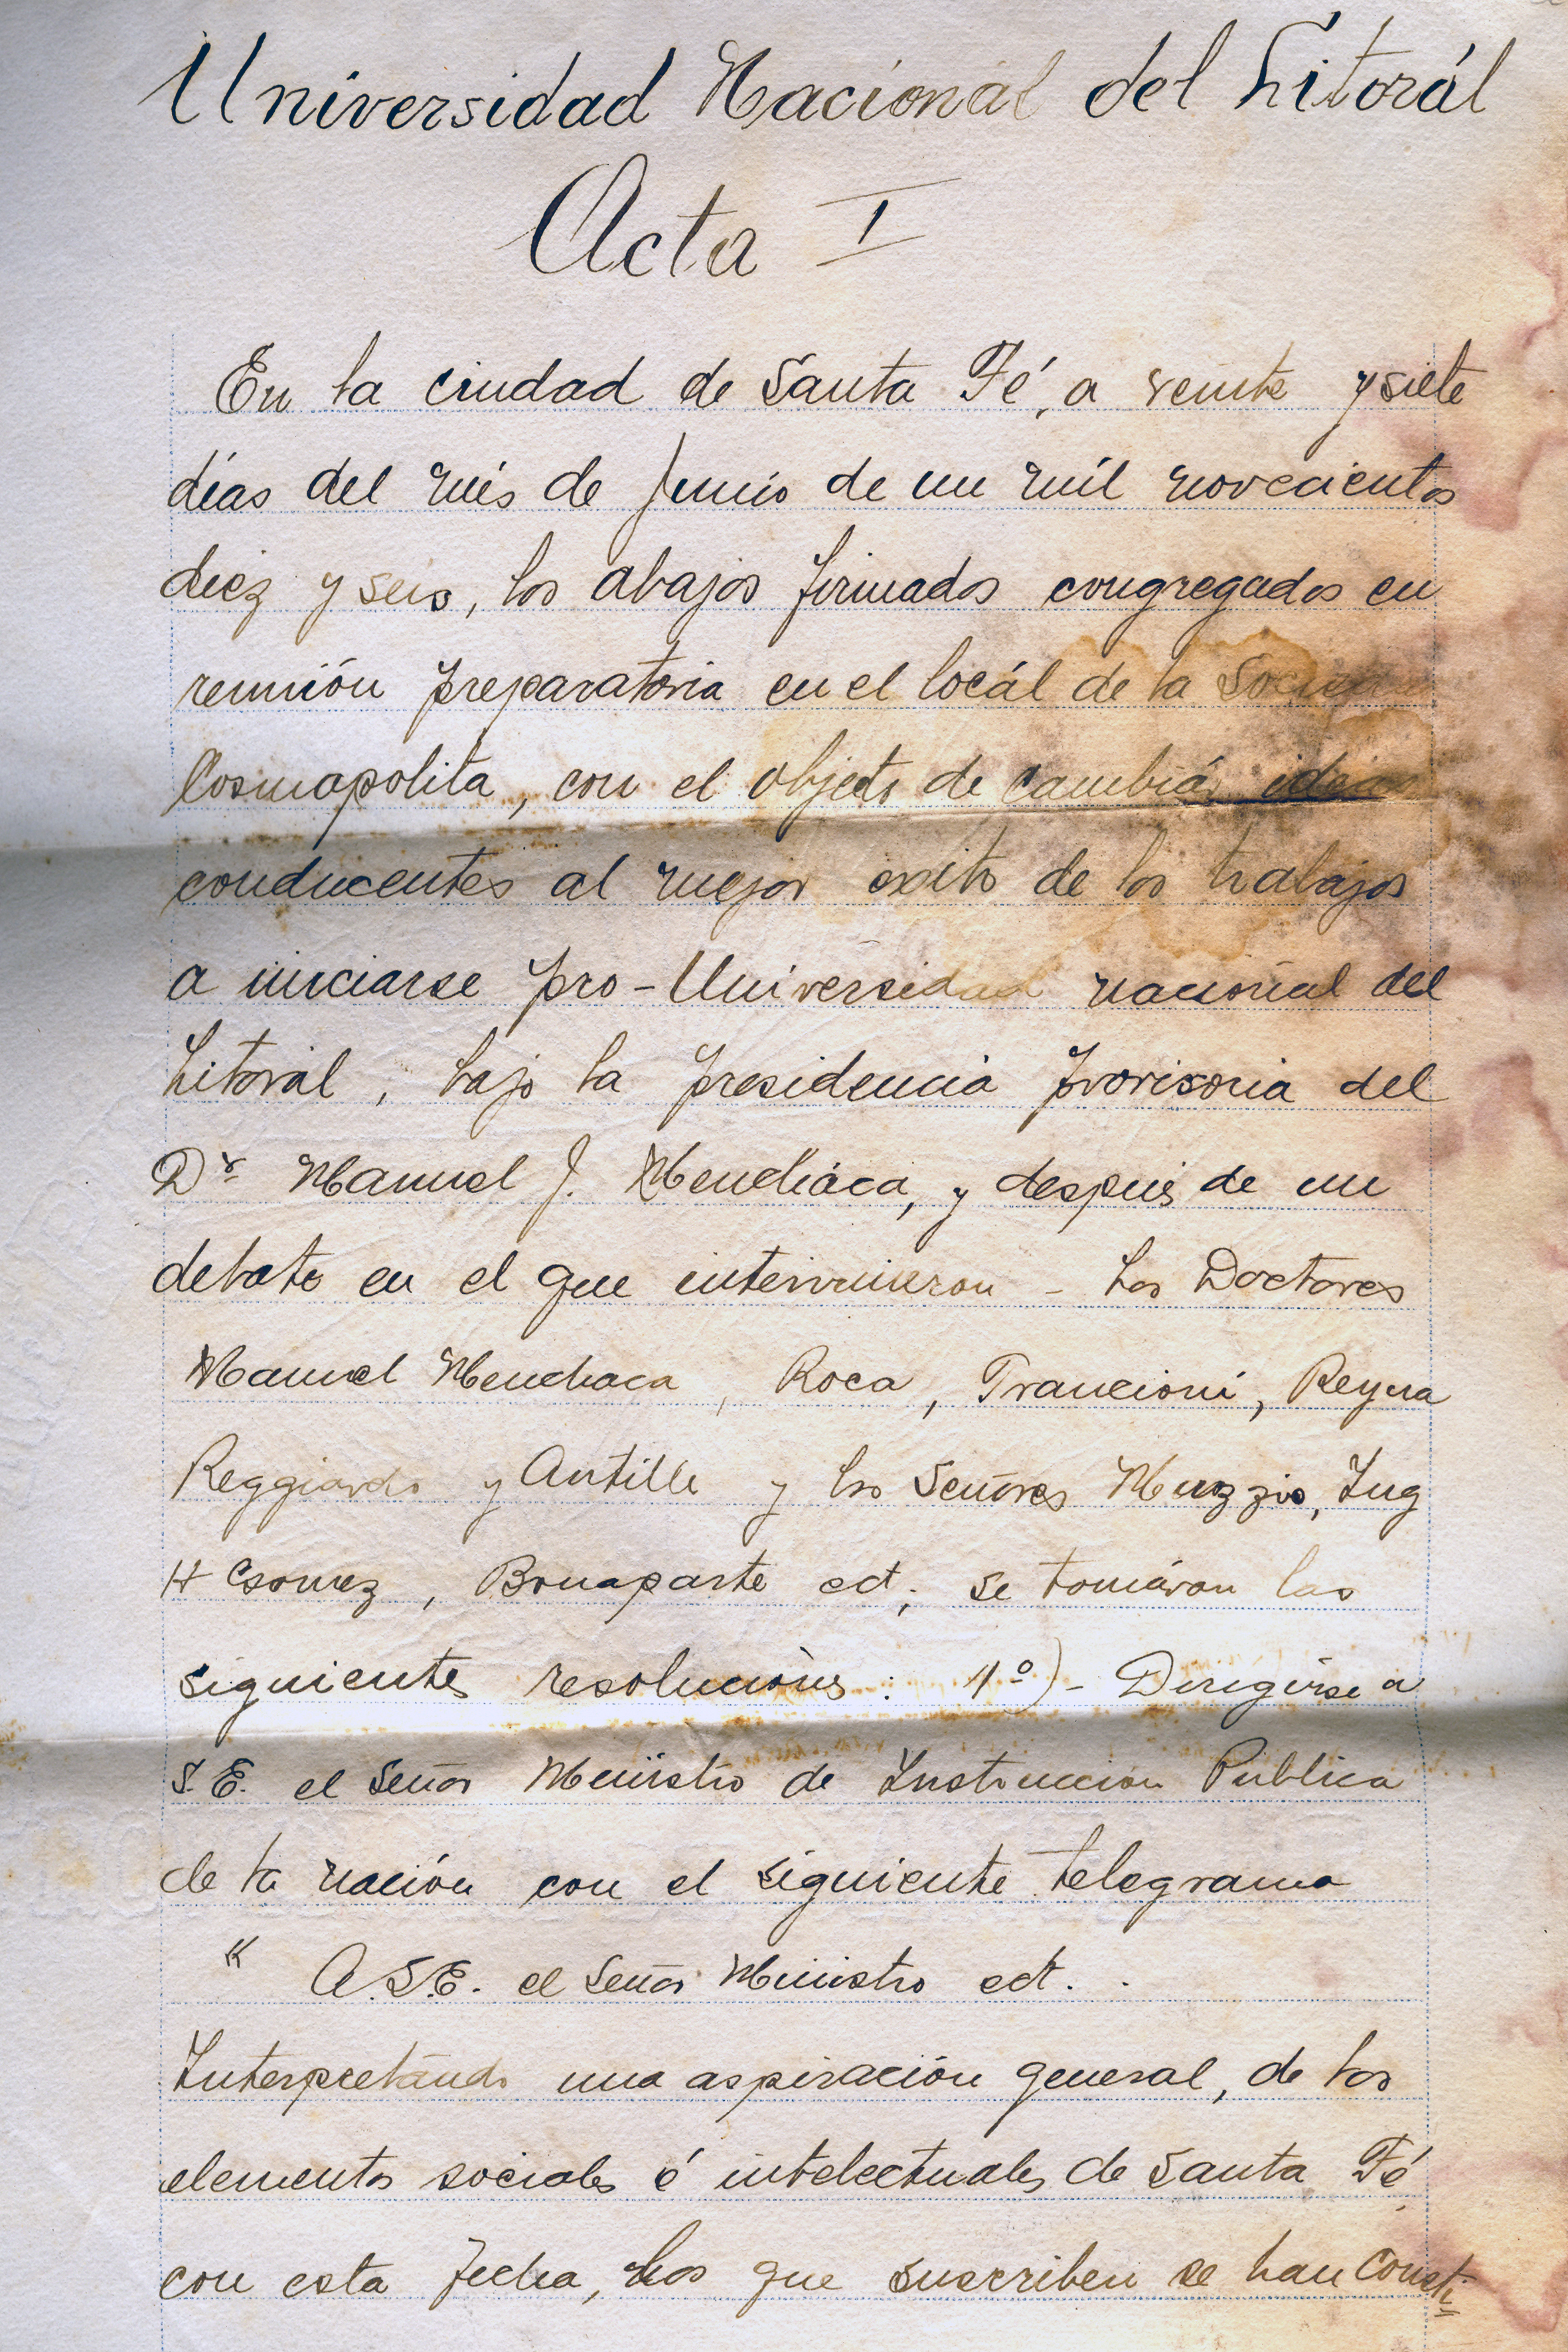 Universidad Nacionál del Litorál
Acta I
En la ciudad de Santa Fé, a veinte y siete
días del més de Junio de un mil novecientos
diez y seis, los abajos firmados congregados en
reunión preparatoria en el locál de la
Cosmopolita, con el objeto de cambiár ideas
conducentes al mejor éxito de los trabajos
a iniciarse pro-Universidad nacional del
Litoral, bajo la presidencia provisoria del
Dr. Manuel J. Mencháca, y después de un
debate en el que intervinieron - los Doctores
Manuel Menchaca, Roca, Francioni, Reyna
Reggiardo y Antille y los Señores Muzzio, Ing
H Gomez, Bonaparte ect; se tomáron las
siguientes resoluciónes: 1º) - Dirigirse a
S.E. el Señor Ministro de Instruccion Publica
de la nación con el siguiente telegrama
" A.S.E. el Señor Ministro ect. .
Interpretándo una aspiración general, de los
elementos sociales é intelectuales de Santa Fé
con esta fecha, los que suscriben se han consti=